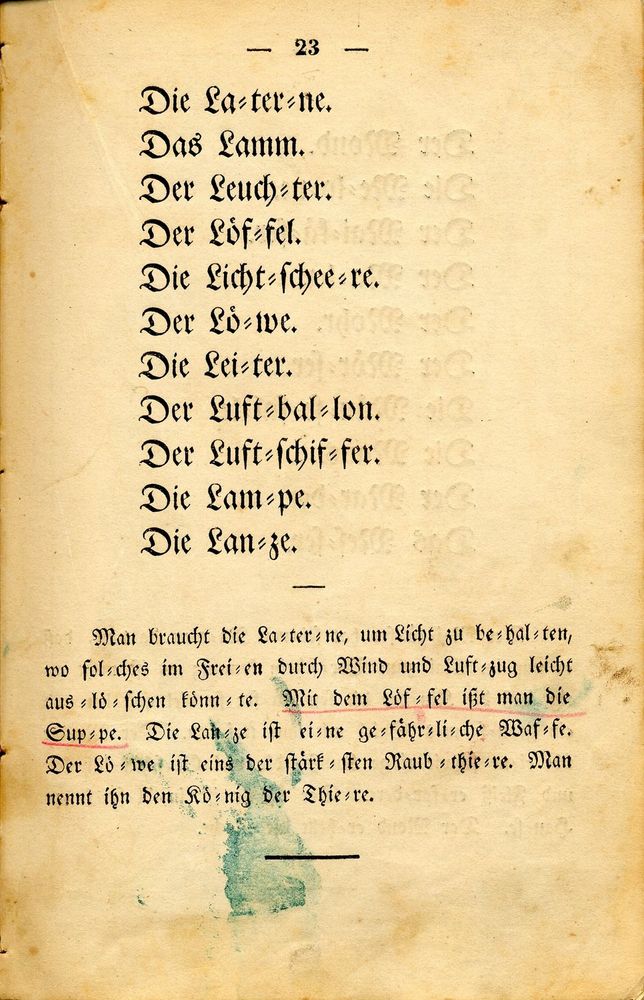 — 23 —
Die La-ter-ne.
Das Lamm.
Der Leuch-ter.
Der Löf-fel.
Die Licht-schee-re.
Der Lö-we.
Die Lei-ter.
Der Luft-bal-lon.
Der Luft-schif-fer.
Die Lam-pe.
Die Lan-ze.
Man braucht die La-ter-ne, um Licht zu be-hal-ten,
wo sol-ches im Frei-en durch Wind und Luft-zug leicht
aus-lö-schen könn-te. Mit dem Löf-fel ißt man die
Sup-pe. Die Lan-ze ist ei-ne ge-fähr-li-che Waf-fe.
Der Lö-we ist eins der stärk-sten Raub-thie-re. Man
nennt ihn den Kö-nig der Thie-re.